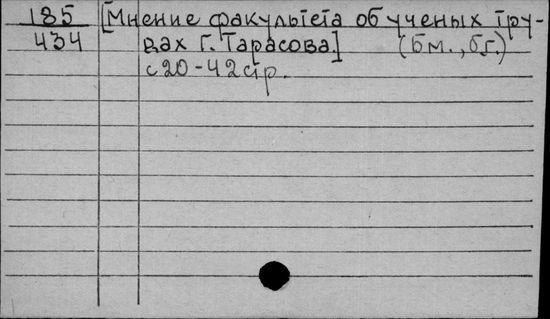 185 [Мнение факультета об ученых тру-
434 дах Г. Тарасова.] (Б м., б.г.)
с 20-42 стр.